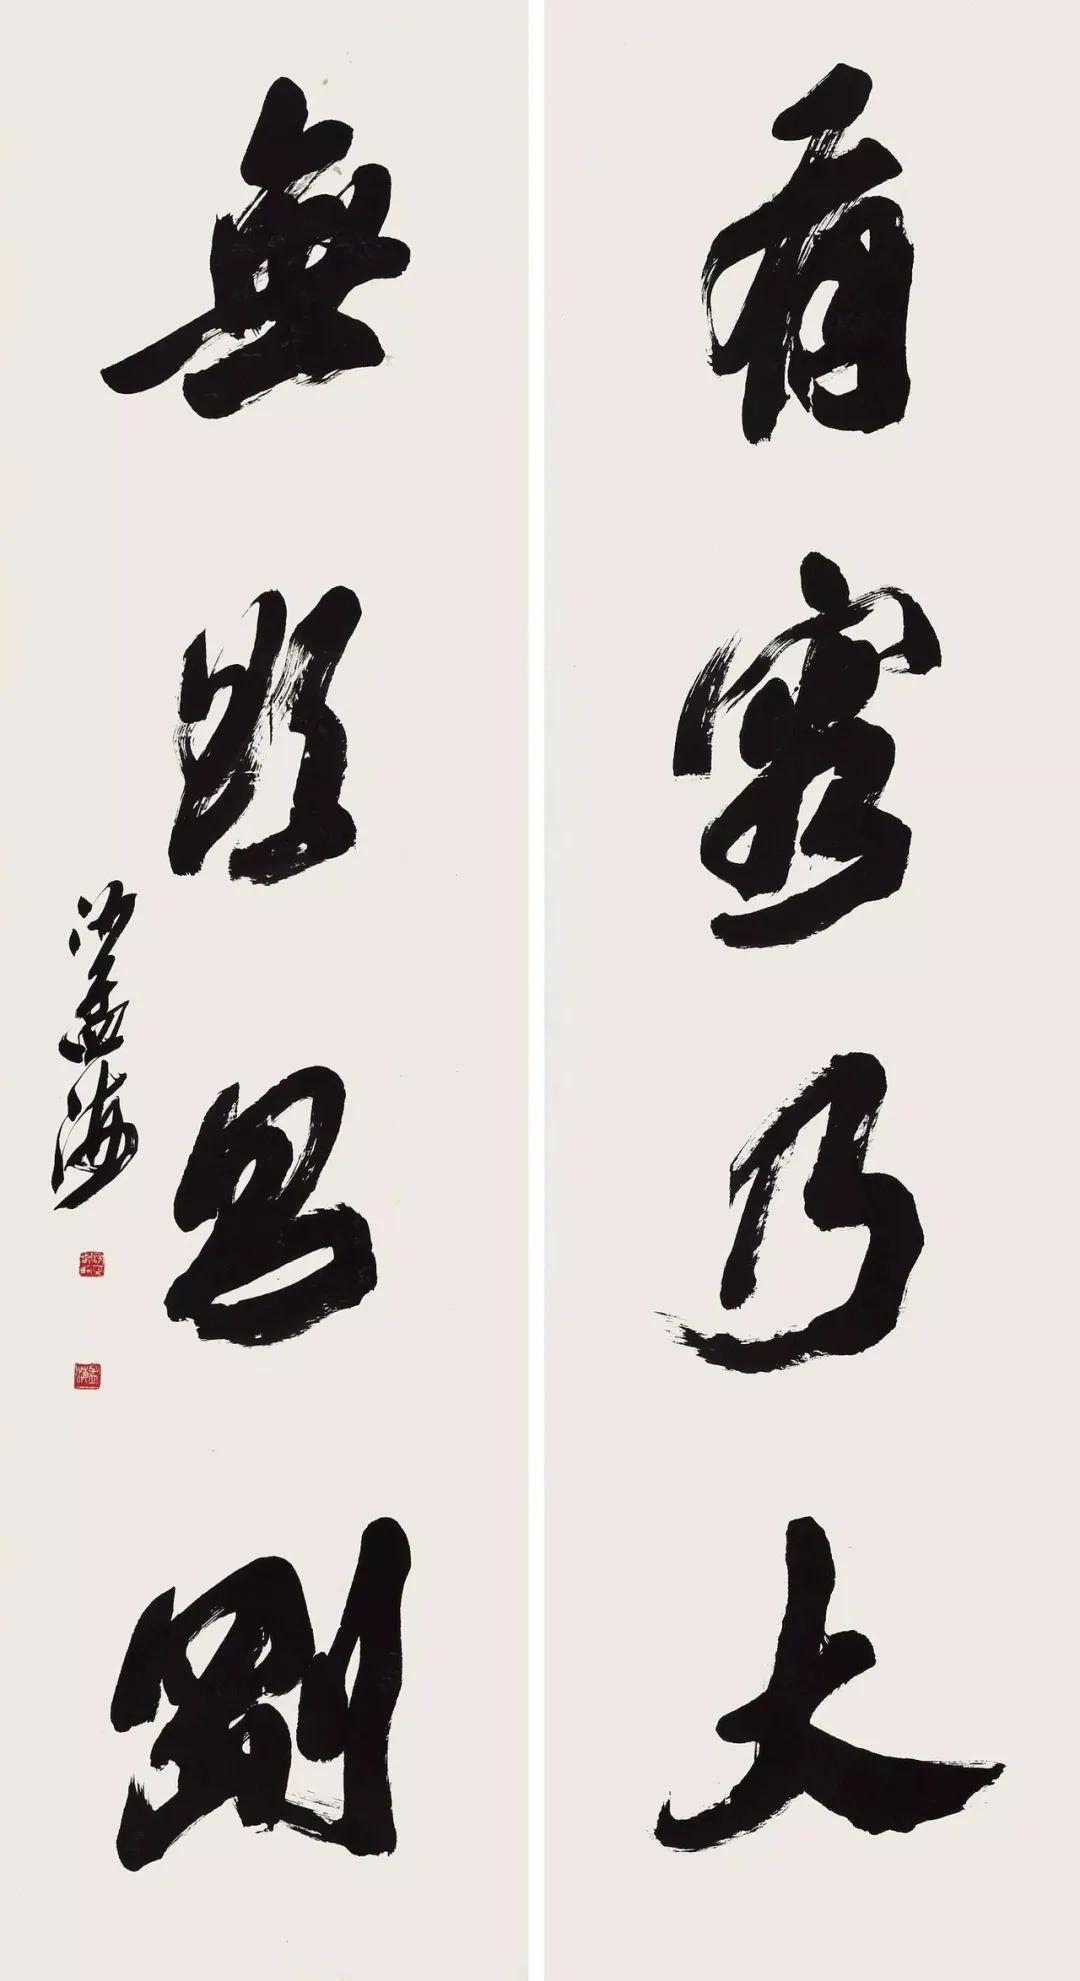 有容乃大
無欲則剛
沙孟海